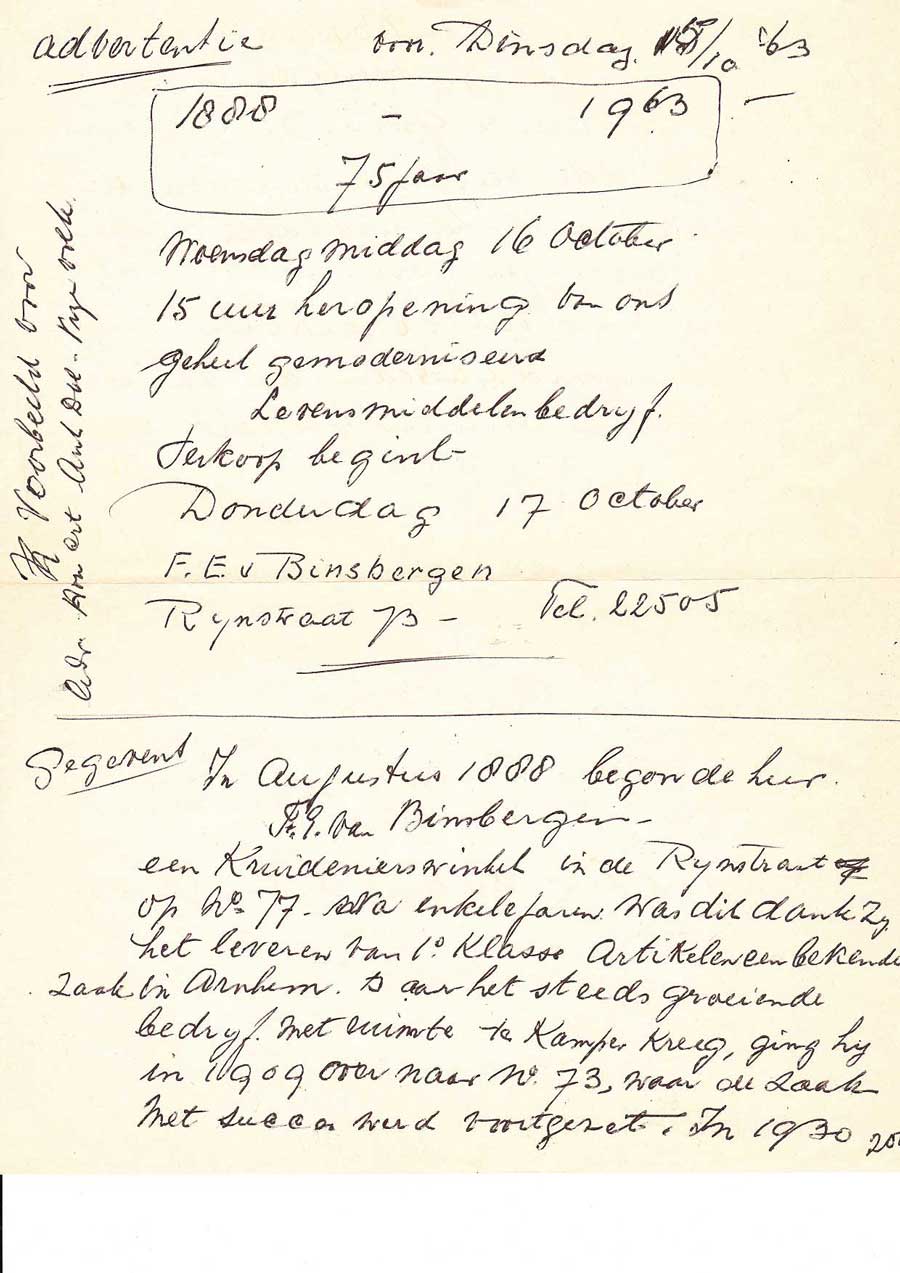 advertentie voor. Dinsdag 15/10 '63
1888 - 1963
75 jaar
Woensdag middag 16 October
15 uur heropening van ons
geheel gemoderniseerd
Levensmiddelenbedryf.
Verkoop begint
Donderdag 17 October
F. E. v Binsbergen
Rynstraat 73 - Tel. 22505
Voorbeeld voor
Gegevens
In Augustus 1888 begon de heer.
F. E. van Binsbergen
een Kruidenierswinkel in de Rynstraat
op No. 77. Na enkele jaren was dit dank zy
het leveren van 1e Klasse Artikelen een bekende
zaak in Arnhem. Daar het steeds groeiende
bedryf met ruimte te Kampen Kreeg, ging hy
in 1909 over naar No. 73, waar de zaak
met succes werd voortgezet. In 1930